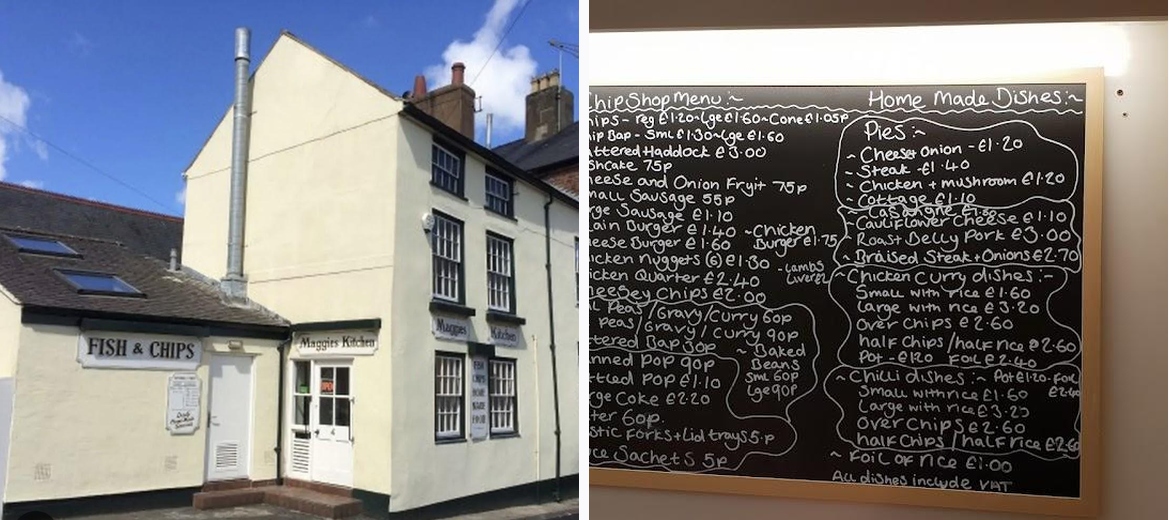 FISH & CHIPS
Maggies Kitchen
OPEN
Maggies Kitchen
FISH
CHIPS
HOME
MADE
FOOD
hip Shop Menu :~
hips - reg £1.20~Lge £1.60~Cone £1.05p
hip Bap - Sml £1.30~Lge £1.60
attered Haddock £3.00
shcake 75p
heese and Onion Fryit 75p
mall Sausage 55p
rge Sausage £1.10
lain Burger £1.40 ~Chicken
heese Burger £1.60 Burger £1.75
hicken Nuggets (6) £1.30
hicken Quarter £2.40 -Lambs
heesey Chips £2.00 Liver £2
l Peas/Gravy/Curry 60p
Peas/Gravy/Curry 90p
ttered Bap 30p ~ Baked
nned Pop 90p Beans
ttled Pop £1.10 Sml 60p
rge Coke £2.20 Lge 90p
ter 60p.
stic Forks+Lid trays 5.p
ce Sachets 5p
Home Made Dishes:~
Pies:~
~ Cheese+onion - £1.20
~ Steak - £1.40
~ Chicken + mushroom £1.20
~ Cottage £1.10
~ Lasagne
Cauliflower Cheese £1.10
Roast Belly Pork £3.00
~ Braised Steak+Onions £2.70
Chicken Curry dishes:-
Small with rice £1.60
Large with rice £3.20
Over Chips £2.60
half Chips/half rice £2.60
Pot - £1.20 Foil £2.40
~ Chilli dishes:~ Pot £1.20-Foil
Small with rice £1.60 £2.40
Large with rice £3.20
Over Chips £2.60
half Chips/half rice £2.60
~ Foil of rice £1.00
All dishes include VAT